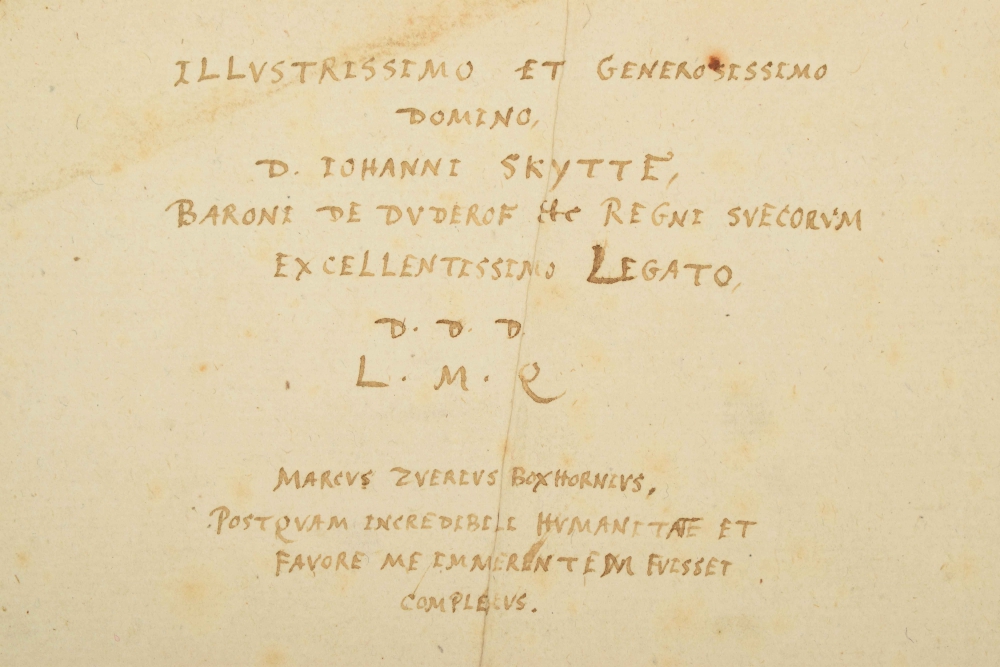 ILLVSTRISSIMO ET GENEROSISSIMO
DOMINO,
D. IOHANNI SKYTTE,
BARONI DE DVDEROF &c REGNI SVECORVM
EXCELLENTISSIMO LEGATO,
D. D. D.
L. M. Q
MARCVS ZVERIVS BOXHORNIVS,
POSTQVAM INCREDIBILI HVMANITATE ET
FAVORE ME IMMERENTEM FVISSET
COMPLEXVS.